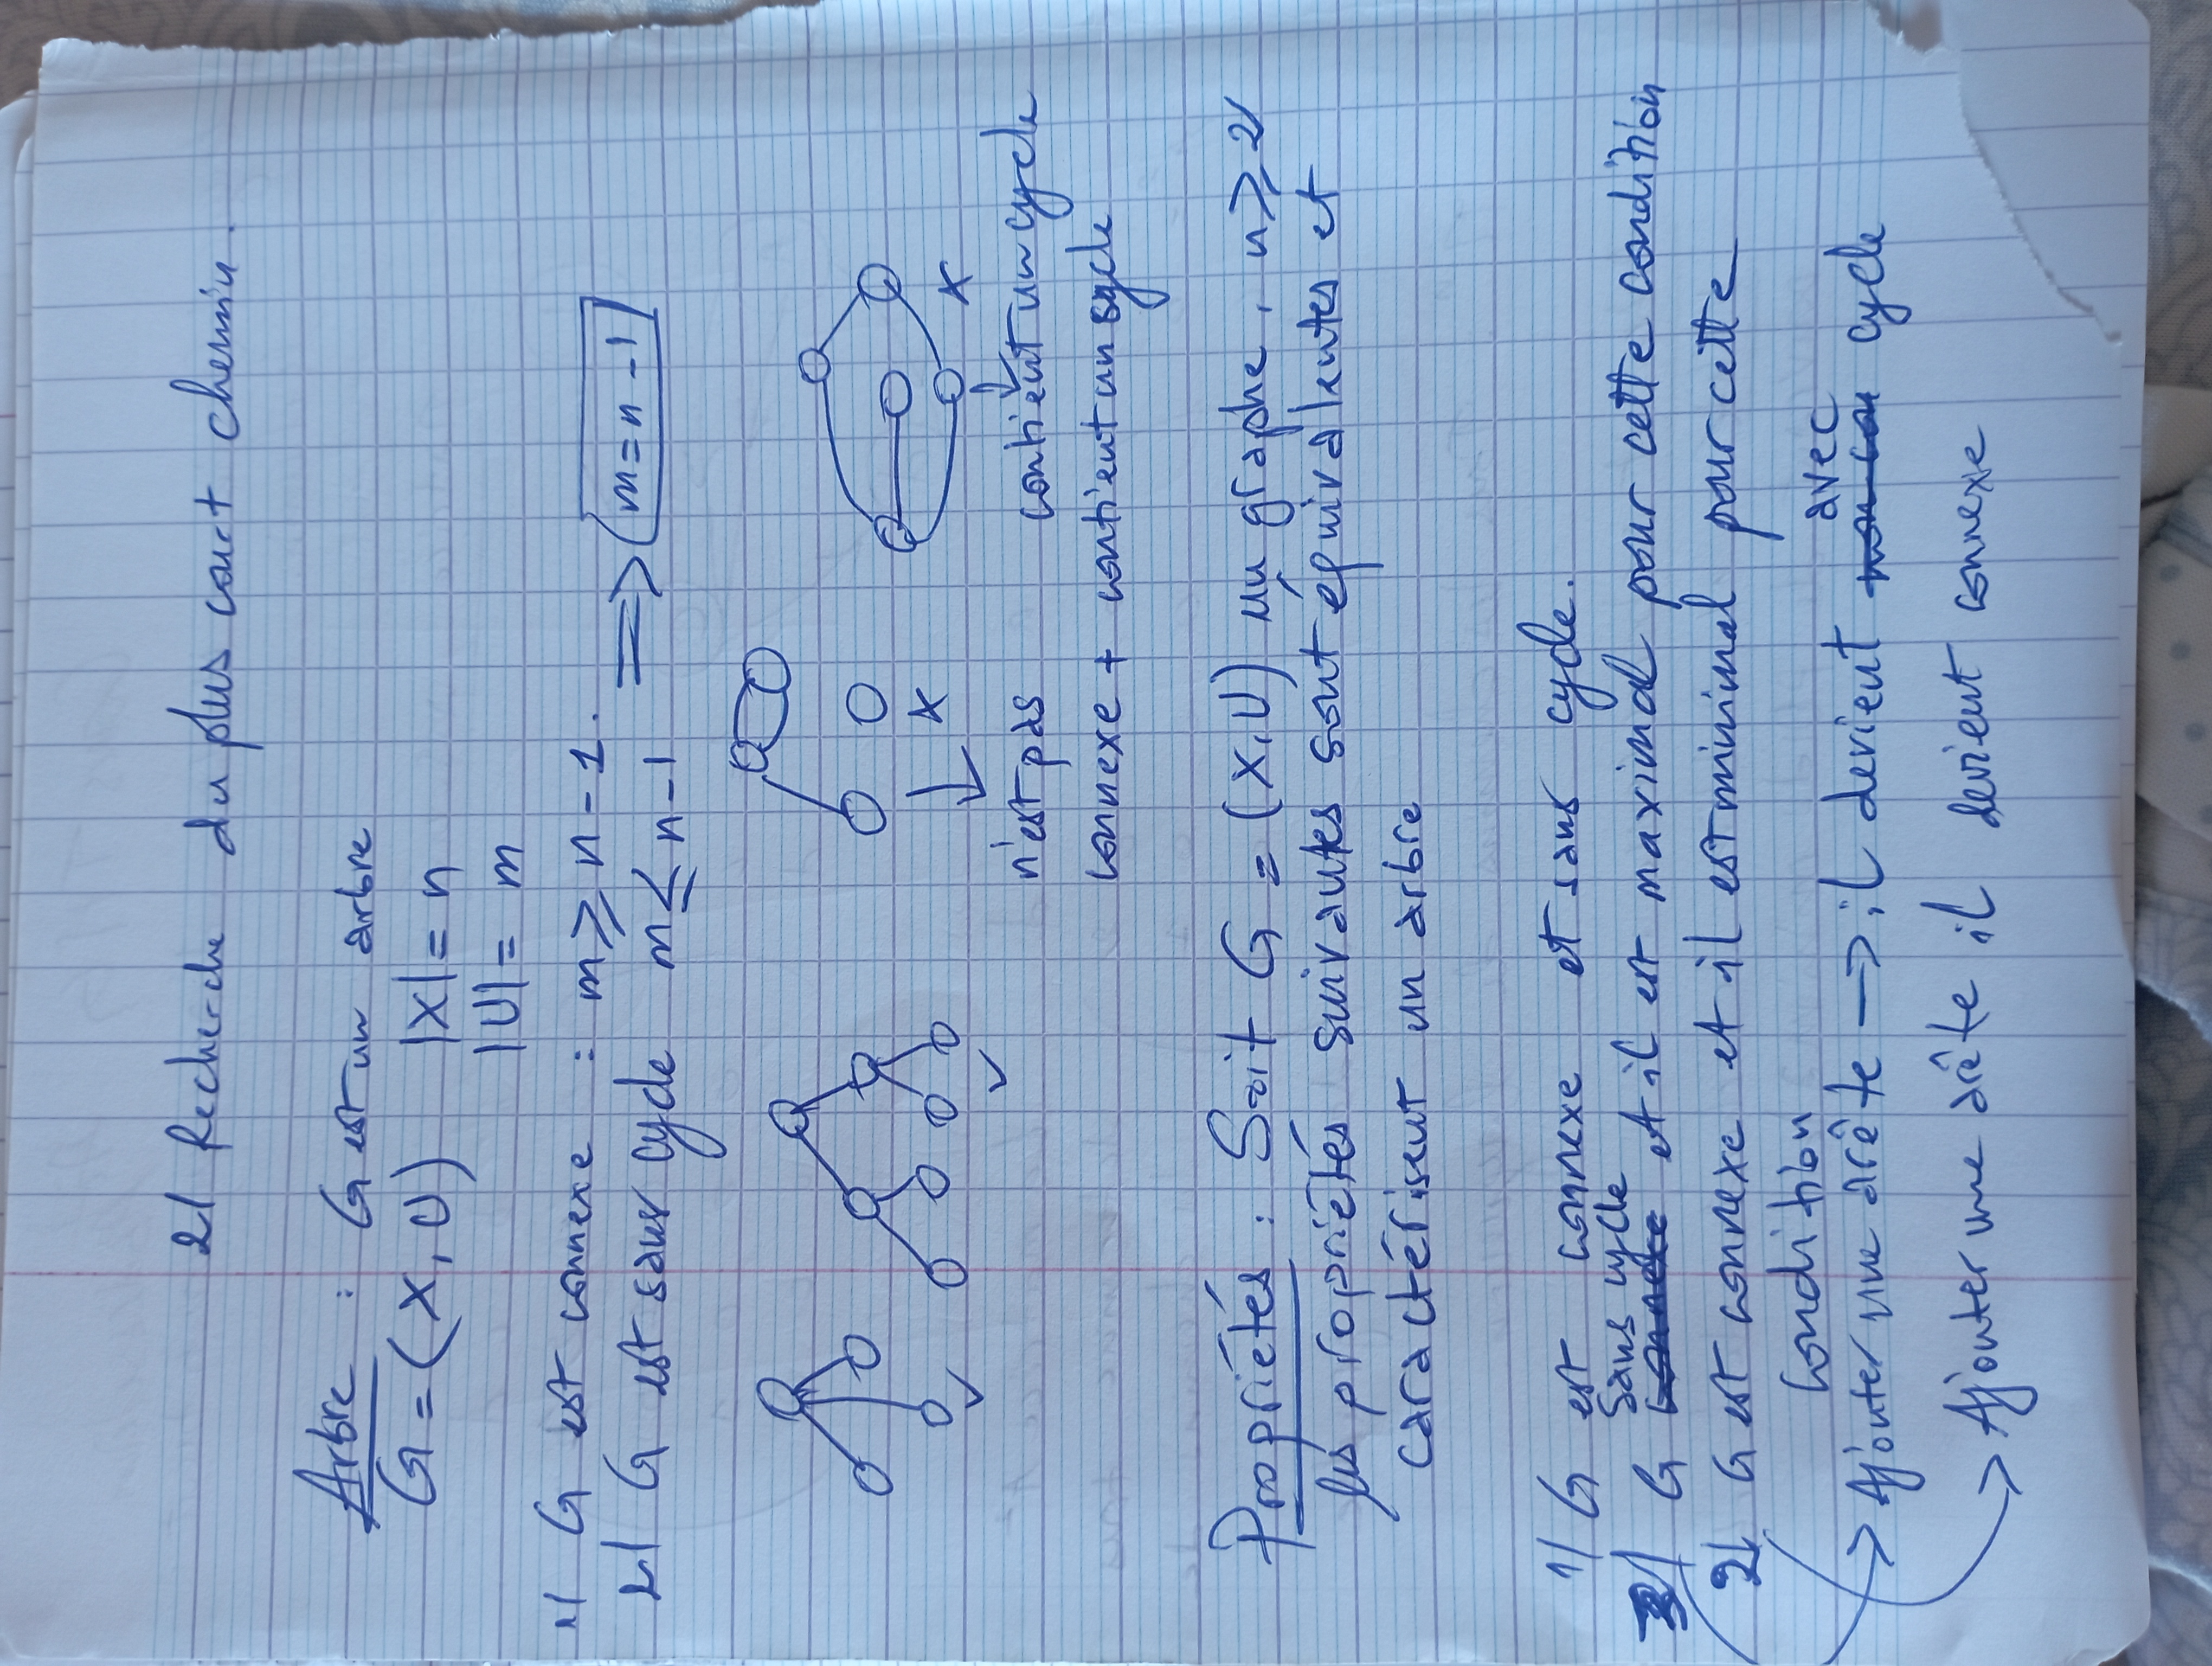 2/ Recherche du plus court chemin.
Arbre : G est un arbre
G = (X, U) |X| = n
|U| = m
1/ G est connexe : m ≥ n - 1.
2/ G est sans cycle m ≤ n - 1 ⟹ m = n - 1
n'est pas connexe + contient un cycle
contient un cycle
Propriétés : Soit G = (X, U) un graphe, n ≥ 2
les propriétés suivantes sont équivalentes et
caractérisent un arbre
1/ G est connexe et sans cycle.
2/ G sans cycle et il est maximal pour cette condition
2/ G est connexe et il est minimal pour cette
condition
→ Ajouter une arête → il devient avec cycle
→ Ajouter une arête il devient connexe